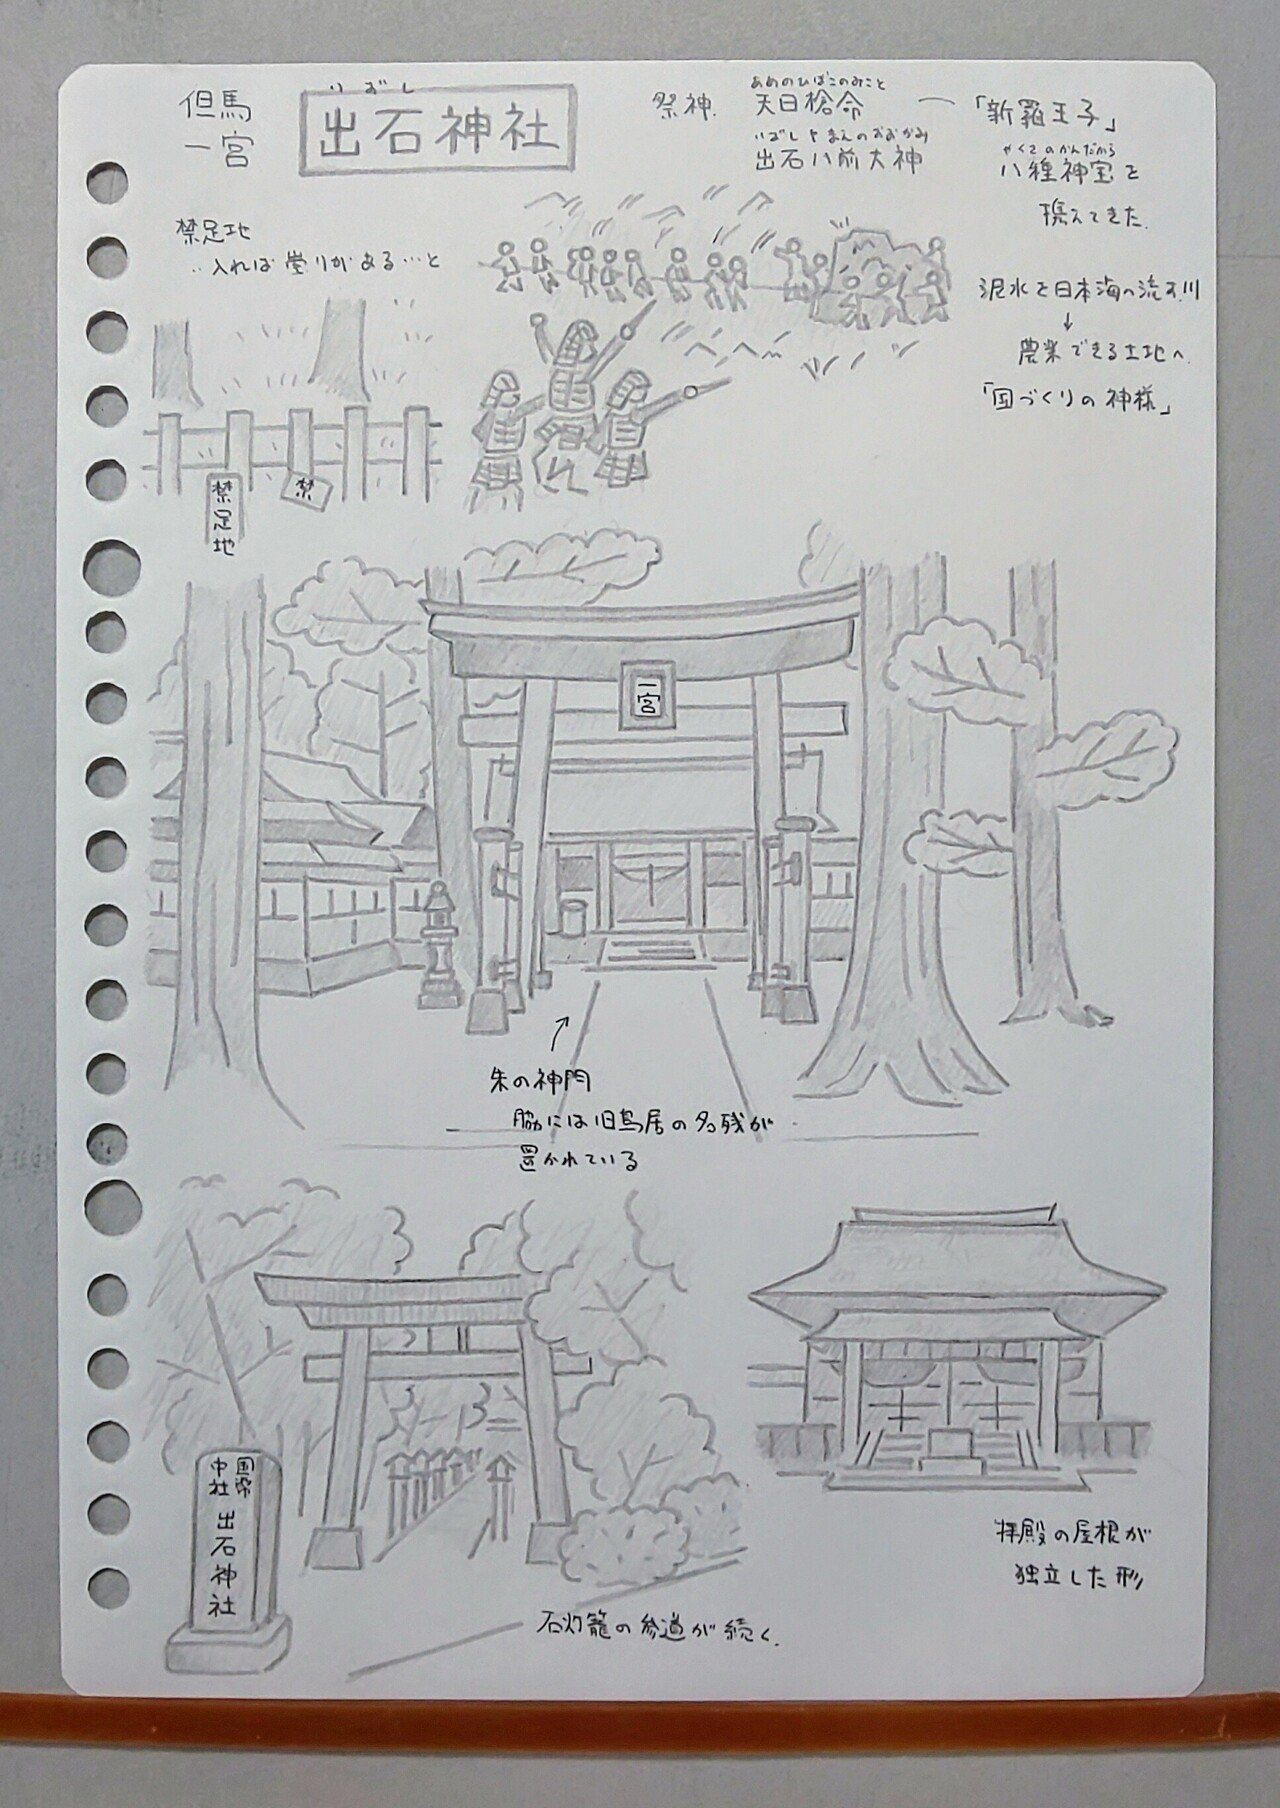 但馬
一宮
いずし
出石神社
祭神.
あめのひぼこのみこと
天日槍命 ―「新羅王子」
いずしやまえのおおかみ
出石八前大神
やくさのかんだから
八種神宝を
携えてきた.
禁足地
…入れば祟りがある…と
泥水を日本海へ流す.
↓
農業できる土地へ.
「国づくりの神様」
禁足地
禁
一宮
朱の神門
脇には旧鳥居の名残が
置かれている
国幣
中社
出石神社
石灯籠の参道が続く.
拝殿の屋根が
独立した形